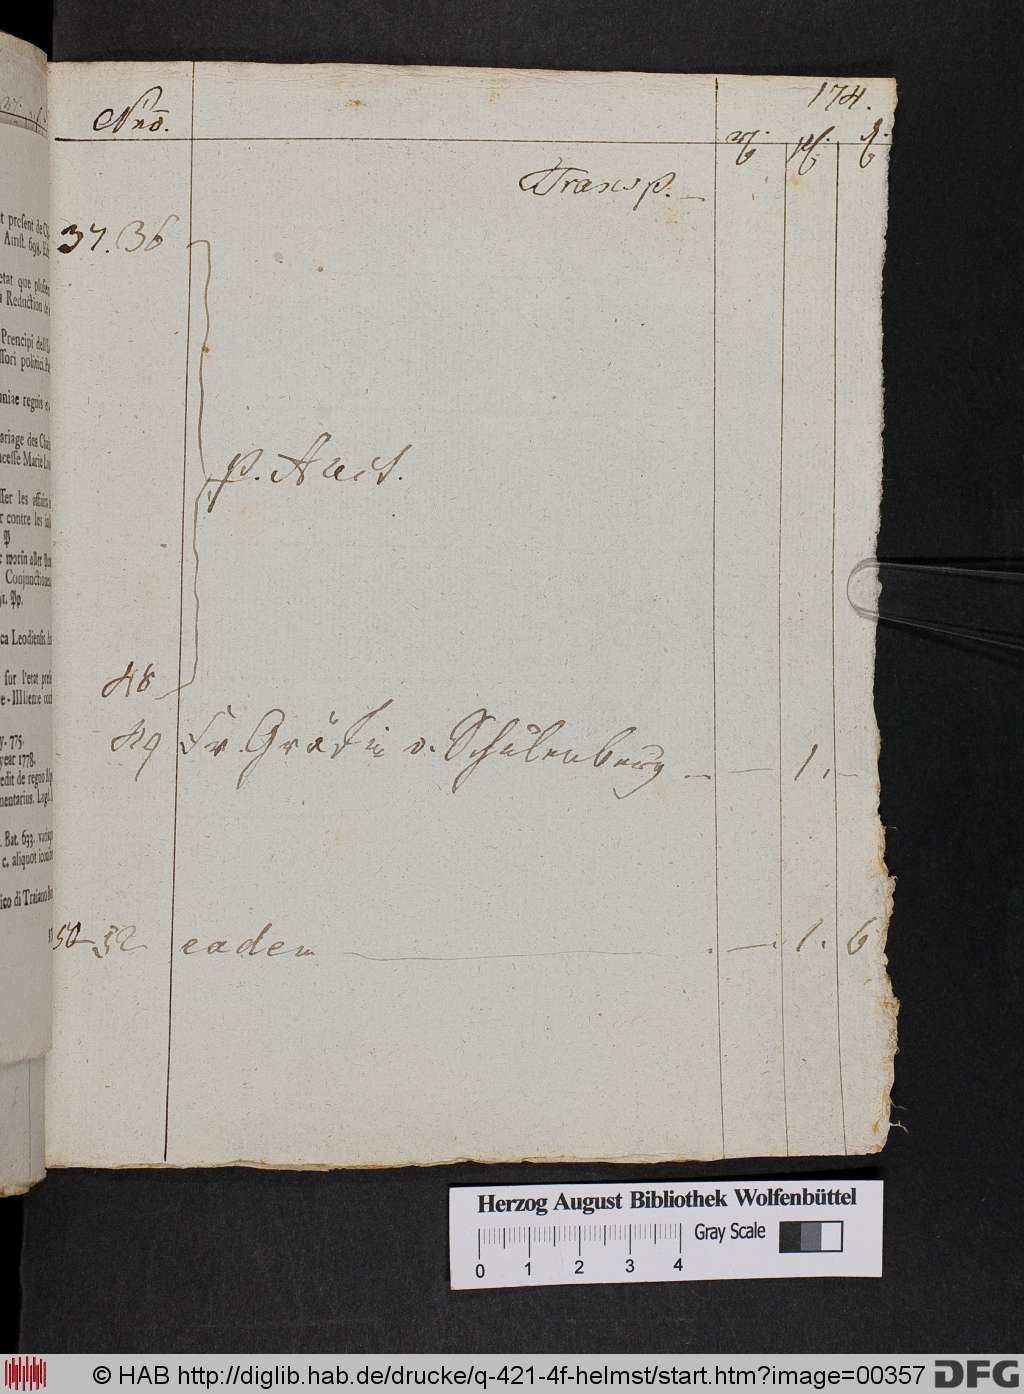 174.
Nro.
Transp. –
37. 36
p. Auct.
48
49 Fr. Gräfin v. Schulenberg – – 1. –
50–52 eadem – . – . 1. 6
t present de
Amst. 693.
etat que
Reduction de
Prencipi dell
ssori politici
niae regnis
ariage des
ncesse Marie
ser les affaires
r contre les
P
worin aller
Conjunctionen
Pp.
ca Leodiensis
sur l'etat
e-IIIieme
y. 775.
year 1778.
edit de regno
mentarius. Lugd.
. Bat. 693.
c. aliquot
ico di Traiano
Herzog August Bibliothek Wolfenbüttel
Gray Scale
0 1 2 3 4
© HAB http://diglib.hab.de/drucke/q-421-4f-helmst/start.htm?image=00357 DFG